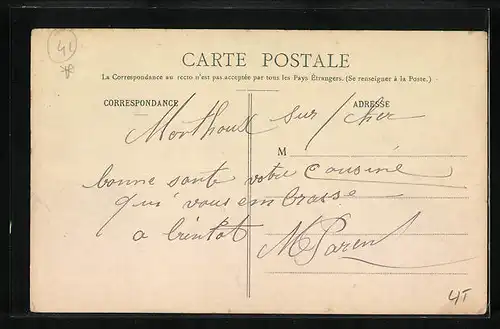 41
CARTE POSTALE
La Correspondance au recto n'est pas acceptée par tous les Pays Étrangers. (Se renseigner à la Poste.)
CORRESPONDANCE
ADRESSE
sur / cher
M
bonne sante votre cousine
qui vous embrasse
a bientot
M Parent
41